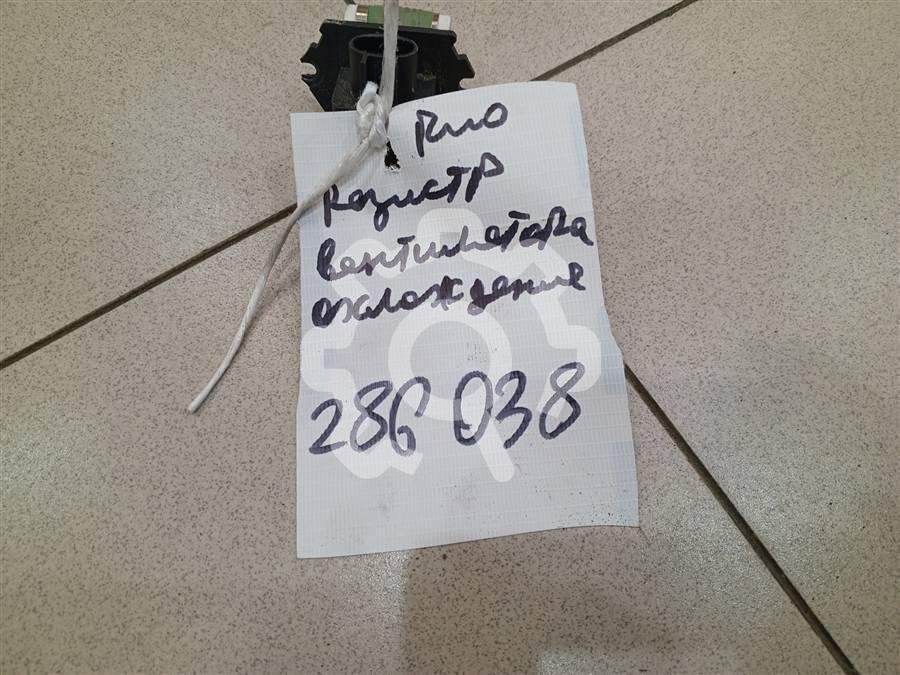 Рио
Резистр
вентилетора
охлождение
286 038